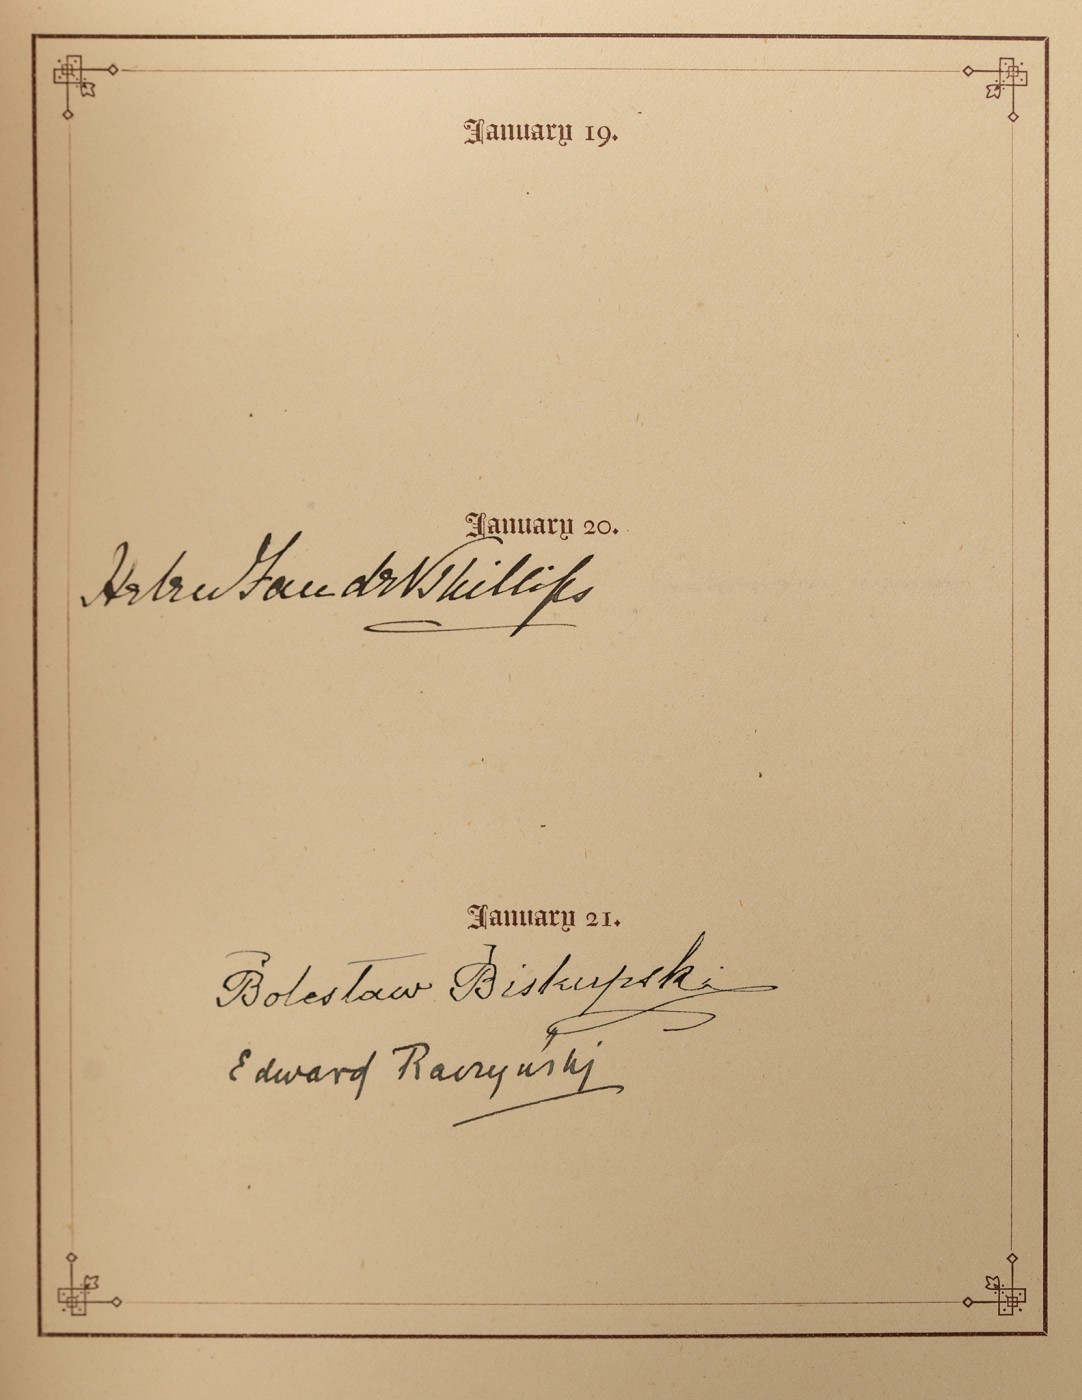 January 19.
January 20.
Phillips
January 21.
Bolesław Biskupski
Edward Raczyński